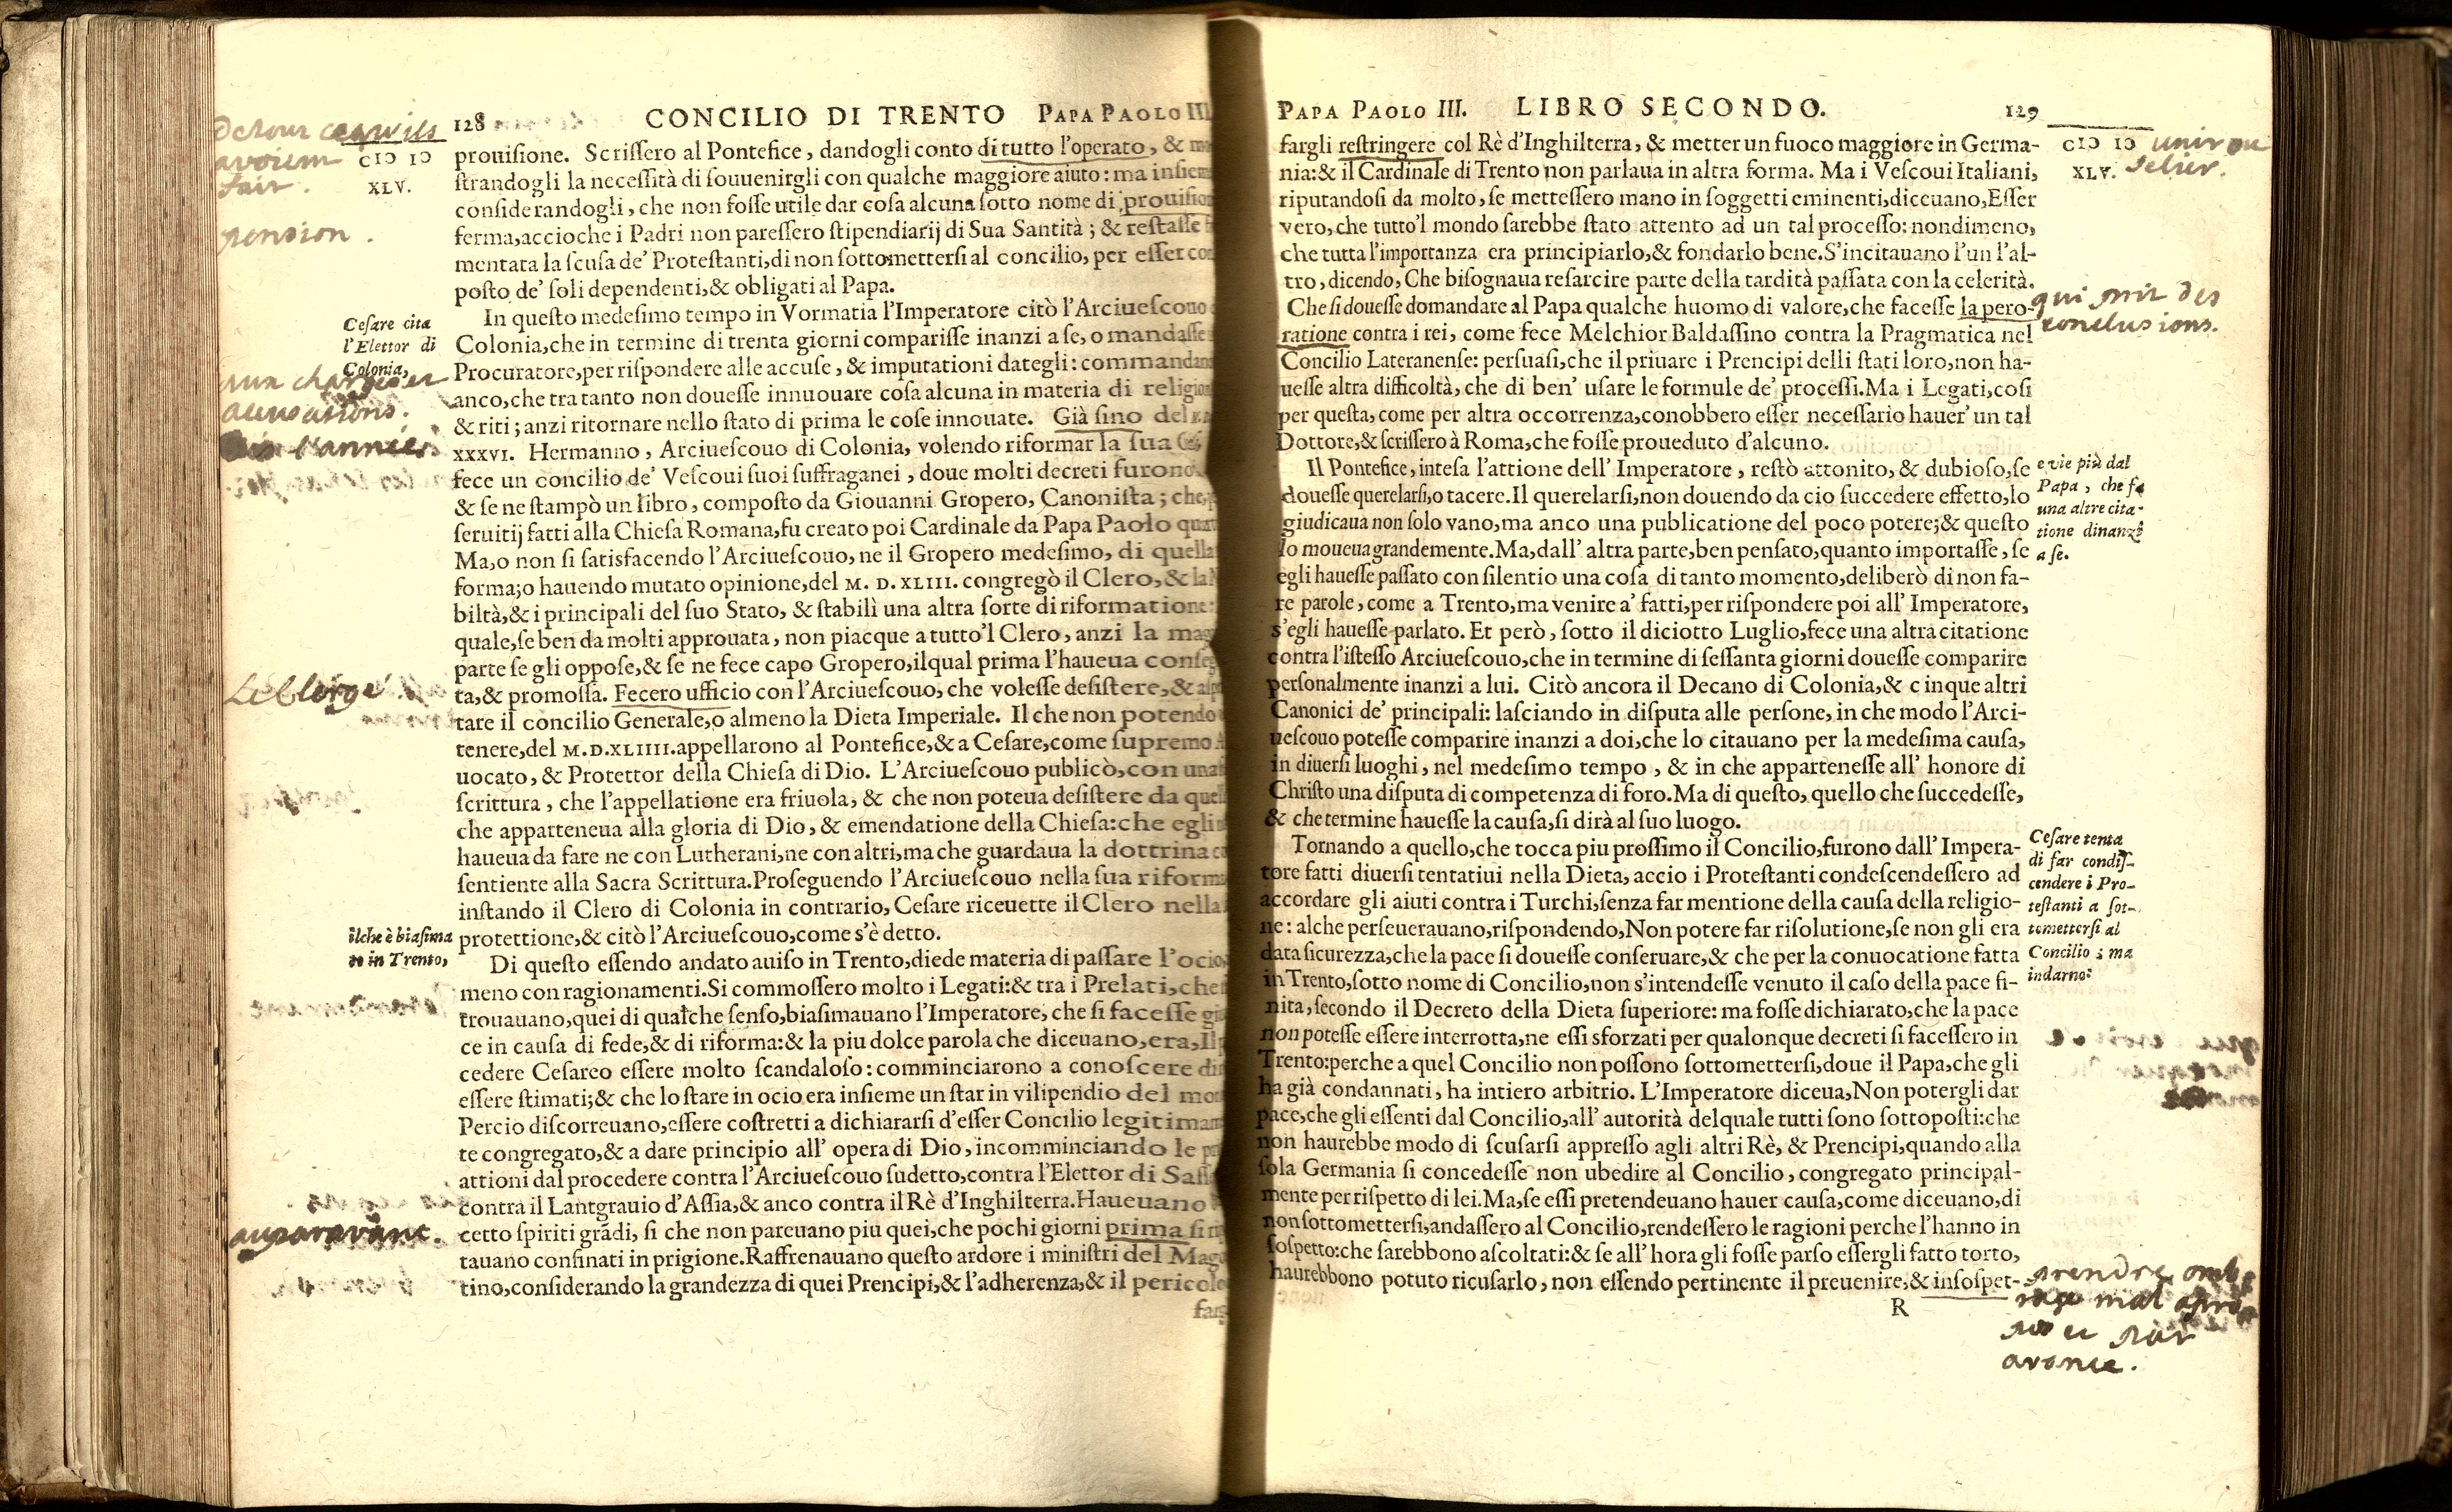 128 CONCILIO DI TRENTO PAPA PAOLO III
de tout ce qu'ils
avoient
fait.
CIↃ IↃ
XLV.
pension.
prouisione. Scrissero al Pontefice, dandogli conto di tutto l'operato, &
strandogli la necessità di souuenirgli con qualche maggiore aiuto: ma insiem
considerandogli, che non fosse utile dar cosa alcuna sotto nome di prouision
ferma, accioche i Padri non paressero stipendiarij di Sua Santità; & restasse
mentata la scusa de' Protestanti, di non sottomettersi al concilio, per esser com
posto de' soli dependenti, & obligati al Papa.
Cesare cita
l'Elettor di
Colonia,
In questo medesimo tempo in Vormatia l'Imperatore citò l'Arciuescouo
Colonia, che in termine di trenta giorni comparisse inanzi a se, o mandasse
Procuratore, per rispondere alle accuse, & imputationi dategli: commandan
anco, che tra tanto non douesse innuouare cosa alcuna in materia di religion
& riti; anzi ritornare nello stato di prima le cose innouate. Già sino del
aux charges et
accusations.
l'année
XXXVI. Hermanno, Arciuescouo di Colonia, volendo riformar la sua
fece un concilio de' Vescoui suoi suffraganei, doue molti decreti furono
& se ne stampò un libro, composto da Giouanni Gropero, Canonista; che,
seruitij fatti alla Chiesa Romana, fu creato poi Cardinale da Papa Paolo
Ma, o non si satisfacendo l'Arciuescouo, ne il Gropero medesimo, di quella
forma; o hauendo mutato opinione, del M. D. XLIII. congregò il Clero, & la
biltà, & i principali del suo Stato, & stabilì una altra sorte di riformatione:
quale, se ben da molti approuata, non piacque a tutto'l Clero, anzi la mag
parte se gli oppose, & se ne fece capo Gropero, ilqual prima l'haueua
ta, & promossa. Fecero ufficio con l'Arciuescouo, che volesse desistere, & asp
Le Clergé
tare il concilio Generale, o almeno la Dieta Imperiale. Il che non potendo
tenere, del M.D.XLIIII. appellarono al Pontefice, & a Cesare, come supremo A
uocato, & Protettor della Chiesa di Dio. L'Arciuescouo publicò, con una
scrittura, che l'appellatione era friuola, & che non poteua desistere da quel
che apparteneua alla gloria di Dio, & emendatione della Chiesa: che egli
haueua da fare ne con Lutherani, ne con altri, ma che guardaua la dottrina
sentiente alla Sacra Scrittura. Proseguendo l'Arciuescouo nella sua riforma
instando il Clero di Colonia in contrario, Cesare riceuette il Clero nella
protettione, & citò l'Arciuescouo, come s'è detto.
ilche è biasima
to in Trento,
Di questo essendo andato auiso in Trento, diede materia di passare l'ocio,
meno con ragionamenti. Si commossero molto i Legati: & tra i Prelati, che
trouauano, quei di qualche senso, biasimauano l'Imperatore, che si facesse giu
ce in causa di fede, & di riforma: & la piu dolce parola che diceuano, era, Il p
cedere Cesareo essere molto scandaloso: comminciarono a conoscere di
essere stimati; & che lo stare in ocio era insieme un star in vilipendio del
Percio discorreuano, essere costretti a dichiararsi d'esser Concilio legitimam
te congregato, & a dare principio all' opera di Dio, incomminciando le
attioni dal procedere contra l'Arciuescouo sudetto, contra l'Elettor di Sass
contra il Lantgrauio d'Assia, & anco contra il Rè d'Inghilterra. Haueuano
auparavant.
cetto spiriti grādi, si che non pareuano piu quei, che pochi giorni prima si
tauano confinati in prigione. Raffrenauano questo ardore i ministri del Magon
tino, considerando la grandezza di quei Prencipi, & l'adherenza, & il pericolo
farg
PAPA PAOLO III. LIBRO SECONDO. 129
CIↃ IↃ
XLV.
unir ou
Relier.
fargli restringere col Rè d'Inghilterra, & metter un fuoco maggiore in Germa-
nia: & il Cardinale di Trento non parlaua in altra forma. Ma i Vescoui Italiani,
riputandosi da molto, se mettessero mano in soggetti eminenti, diceuano, Esser
vero, che tutto'l mondo sarebbe stato attento ad un tal processo: nondimeno,
che tutta l'importanza era principiarlo, & fondarlo bene. S'incitauano l'un l'al-
tro, dicendo, Che bisognaua resarcire parte della tardità passata con la celerità.
Che si douesse domandare al Papa qualche huomo di valore, che facesse la pero-
qui prit des
conclusions.
ratione contra i rei, come fece Melchior Baldassino contra la Pragmatica nel
Concilio Lateranense: persuasi, che il priuare i Prencipi delli stati loro, non ha-
uesse altra difficoltà, che di ben' usare le formule de' processi. Ma i Legati, cosi
per questa, come per altra occorrenza, conobbero esser necessario hauer' un tal
Dottore, & scrissero à Roma, che fosse proueduto d'alcuno.
e vie più dal
Papa, che fa
una altre cita-
tione dinanzi
a se.
Il Pontefice, intesa l'attione dell' Imperatore, restò attonito, & dubioso, se
douesse querelarsi, o tacere. Il querelarsi, non douendo da cio succedere effetto, lo
giudicaua non solo vano, ma anco una publicatione del poco potere; & questo
lo moueua grandemente. Ma, dall' altra parte, ben pensato, quanto importasse, se
egli hauesse passato con silentio una cosa di tanto momento, deliberò di non fa-
re parole, come a Trento, ma venire a' fatti, per rispondere poi all' Imperatore,
s'egli hauesse parlato. Et però, sotto il diciotto Luglio, fece una altra citatione
contra l'istesso Arciuescouo, che in termine di sessanta giorni douesse comparire
personalmente inanzi a lui. Citò ancora il Decano di Colonia, & cinque altri
Canonici de' principali: lasciando in disputa alle persone, in che modo l'Arci-
uescouo potesse comparire inanzi a doi, che lo citauano per la medesima causa,
in diuersi luoghi, nel medesimo tempo, & in che appartenesse all' honore di
Christo una disputa di competenza di foro. Ma di questo, quello che succedesse,
& che termine hauesse la causa, si dirà al suo luogo.
Cesare tenta
di far condis-
cendere i Pro-
testanti a sot-
tomettersi al
Concilio; ma
indarno:
Tornando a quello, che tocca piu prossimo il Concilio, furono dall' Impera-
tore fatti diuersi tentatiui nella Dieta, accio i Protestanti condescendessero ad
accordare gli aiuti contra i Turchi, senza far mentione della causa della religio-
ne: alche perseuerauano, rispondendo, Non potere far risolutione, se non gli era
data sicurezza, che la pace si douesse conseruare, & che per la conuocatione fatta
in Trento, sotto nome di Concilio, non s'intendesse venuto il caso della pace fi-
nita, secondo il Decreto della Dieta superiore: ma fosse dichiarato, che la pace
non potesse essere interrotta, ne essi sforzati per qualonque decreti si facessero in
Trento: perche a quel Concilio non possono sottomettersi, doue il Papa, che gli
ha già condannati, ha intiero arbitrio. L'Imperatore diceua, Non potergli dar
pace, che gli essenti dal Concilio, all' autorità delquale tutti sono sottoposti: che
non haurebbe modo di scusarsi appresso agli altri Rè, & Prencipi, quando alla
sola Germania si concedesse non ubedire al Concilio, congregato principal-
mente per rispetto di lei. Ma, se essi pretendeuano hauer causa, come diceuano, di
non sottomettersi, andassero al Concilio, rendessero le ragioni perche l'hanno in
sospetto: che sarebbono ascoltati: & se all' hora gli fosse parso essergli fatto torto,
haurebbono potuto ricusarlo, non essendo pertinente il preuenire, & insospet-
prendre omb
rage mal apro
po et par
avance.
R